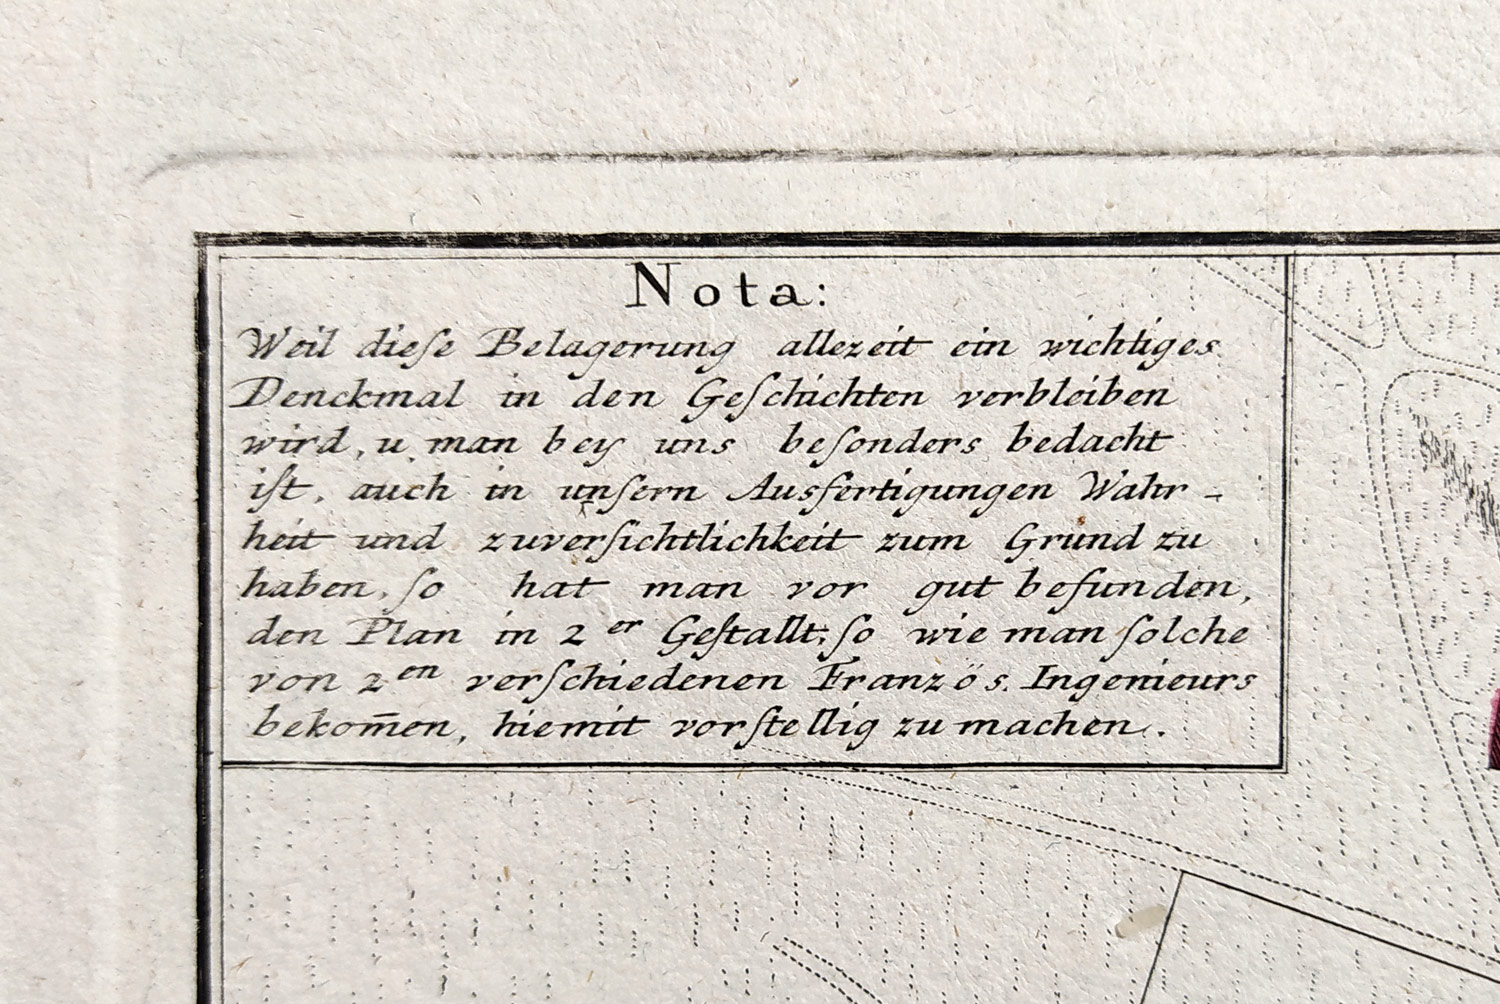 Nota:
Weil dieſe Belagerung allezeit ein wichtiges
Denckmal in den Geſchichten verbleiben
wird, u. man bey uns beſonders bedacht
iſt, auch in unſern Ausfertigungen Wahr-
heit und zuverſichtlichkeit zum Grund zu
haben, ſo hat man vor gut befunden,
den Plan in 2er Geſtallt, ſo wie man ſolche
von 2en verſchiedenen Französ. Ingenieurs
bekom̄en, hiemit vorſtellig zu machen.